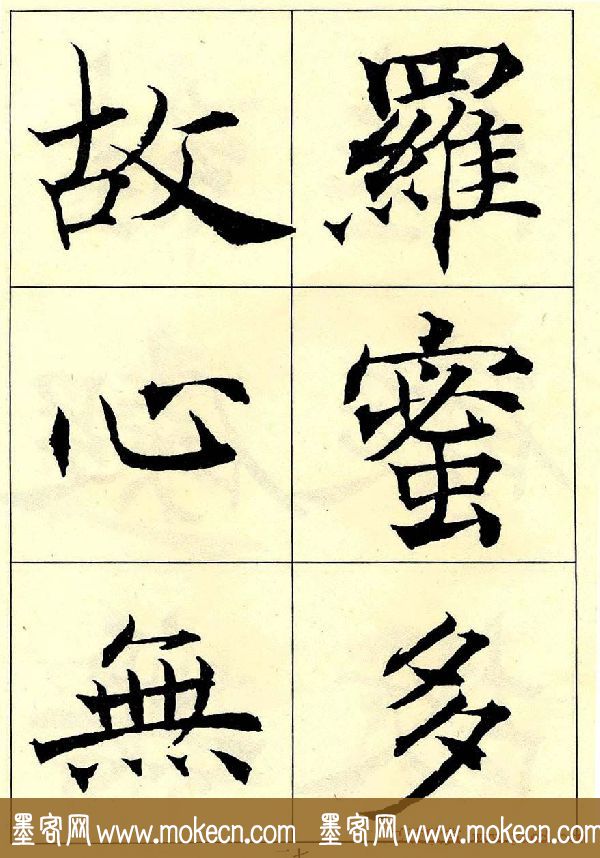 羅蜜多
故心無
墨客网 www.mokecn.com 墨客网 www.mokecn.com